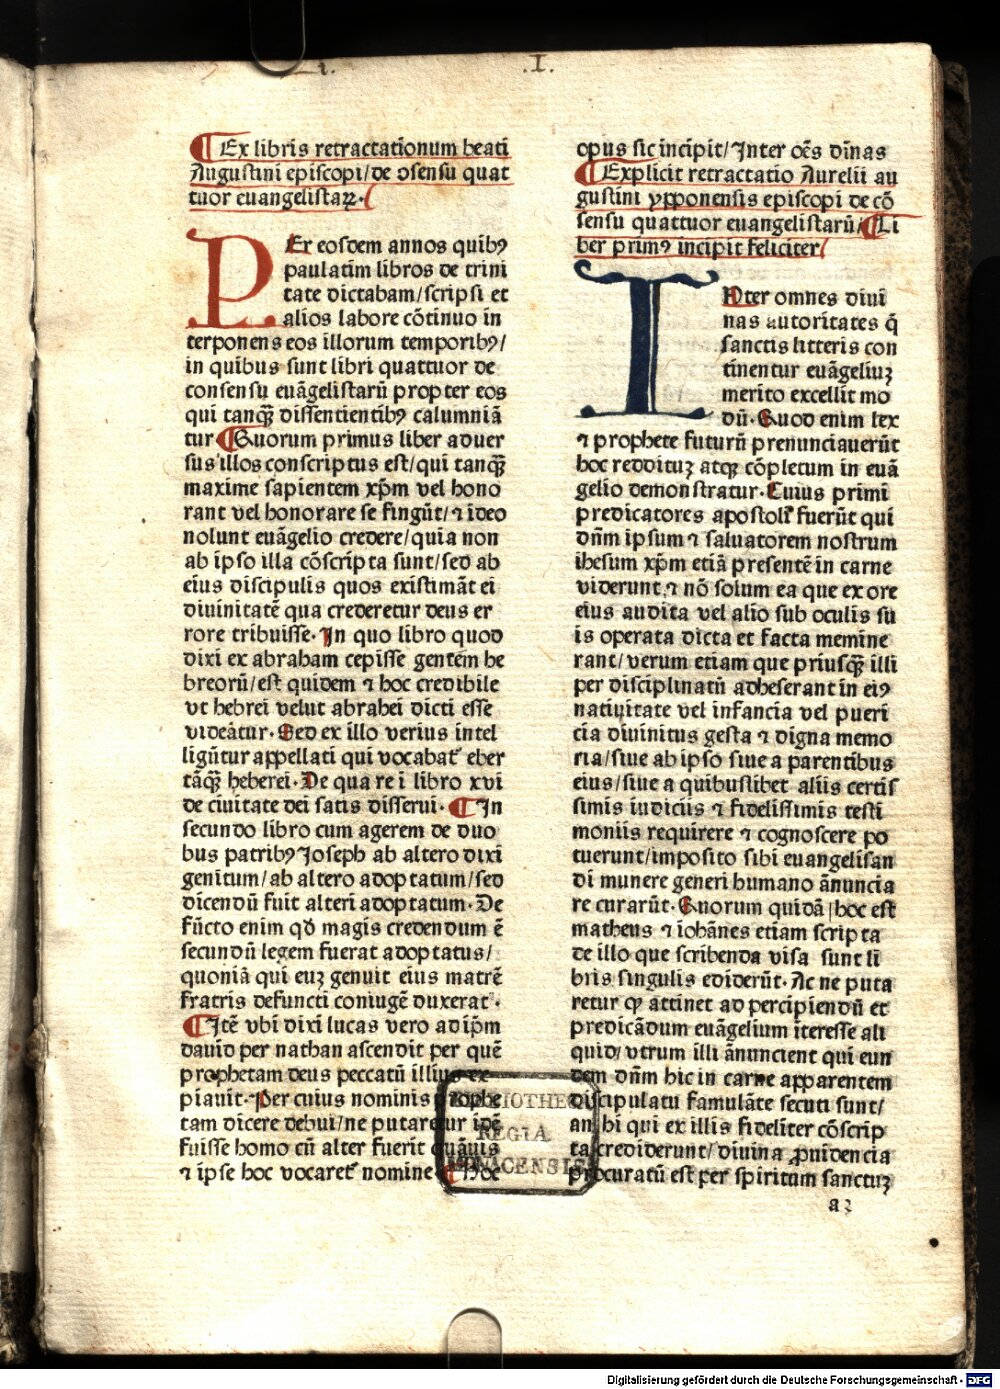 .I.
¶Ex libris retractationum beati
Augustini episcopi/de ↄsensu quat
tuor euangelistaꝝ.
PEr eosdem annos quibꝰ
paulatim libros de trini
tate dictabam/scripsi et
alios labore cōtinuo in
terponens eos illorum temporibꝰ/
in quibus sunt libri quattuor de
consensu euāgelistarū propter eos
qui tanqȝ̄ dissentientibꝰ calumniā
tur ¶Quorum primus liber aduer
sus illos conscriptus est/qui tanqȝ̄
maxime sapientem xp̄m vel hono
rant vel honorare se fingūt/⁊ ideo
nolunt euāgelio credere/quia non
ab ipso illa cōscripta sunt/sed ab
eius discipulis quos existimāt ei
diuinitatē qua crederetur deus er
rore tribuisse. In quo libro quod
dixi ex abraham cepisse gentem he
breorū/est quidem ⁊ hoc credibile
vt hebrei velut abrahei dicti esse
videātur. Sed ex illo verius intel
ligūtur appellati qui vocabat᷑ eber
tāqȝ̄ heberei. De qua re ī libro xvi
de ciuitate dei satis disserui. ¶In
secundo libro cum agerem de duo
bus patribꝰ Ioseph ab altero dixi
genitum/ab altero adoptatum/sed
dicendū fuit alteri adoptatum. De
fūcto enim qđ magis credendum ē
secundū legem fuerat adoptatus/
quoniā qui euȝ genuit eius matrē
fratris defuncti coniugē duxerat.
¶Itē vbi dixi lucas vero ad ip̄m
dauid per nathan ascendit per quē
prophetam deus peccatū illius ex
piauit. Per cuius nominis prophe
tam dicere debui/ne putaretur idē
fuisse homo cū alter fuerit quāuis
⁊ ipse hoc vocaret᷑ nomine ¶Hoc
opus sic incipit/Inter oēs diīnas
¶Explicit retractatio Aurelii au
gustini ypponensis episcopi de cō
sensu quattuor euangelistarū/¶Li
ber primꝰ incipit feliciter
INter omnes diui
nas autoritates q̄
sanctis litteris con
tinentur euāgeliuȝ
merito excellit mo
dū. Quod enim lex
⁊ prophete futurū prenunciauerūt
hoc reddituȝ atqȝ cōpletum in euā
gelio demonstratur. Cuius primi
predicatores apostoli fuerūt qui
dn̄m ipsum ⁊ saluatorem nostrum
ihesum xp̄m etiā presentē in carne
viderunt/⁊ nō solum ea que ex ore
eius audita vel alio sub oculis su
is operata dicta et facta memine
rant/verum etiam que priusqȝ̄ illi
per disciplinatū adheserant in eiꝰ
natiuitate vel infancia vel pueri
cia diuinitus gesta ⁊ digna memo
ria/siue ab ipso siue a parentibus
eius/siue a quibuslibet aliis certis
simis iudiciis ⁊ fidelissimis testi
moniis requirere ⁊ cognoscere po
tuerunt/imposito sibi euangelisan
di munere generi humano ānuncia
re curarūt. Quorum quidā/hoc est
matheus ⁊ iohānes etiam scripta
de illo que scribenda visa sunt li
bris singulis ediderūt. Ac ne puta
retur ꝙ attinet ad percipiendū et
predicādum euāgelium īteresse ali
quid/vtrum illi ānuncient qui eun
dem dn̄m hic in carne apparentem
discipulatu famulāte secuti sunt/
an hi qui ex illis fideliter cōscrip
ta crediderunt/diuina ꝓuidencia
procuratū est per spiritum sanctuȝ
a2
BIBLIOTHECA
REGIA
MONACENSIS
Digitalisierung gefördert durch die Deutsche Forschungsgemeinschaft - DFG